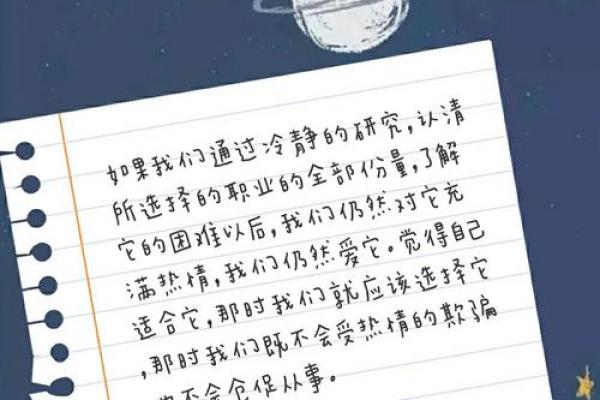 如果我们通过冷静的研究,认清
所选择的职业的全部份量,了解
它的困难以后,我们仍然对它充
满热情,我们仍然爱它。觉得自己
适合它,那时我们就应该选择它
,那时我们既不会受热情的欺骗
不会仓促从事。